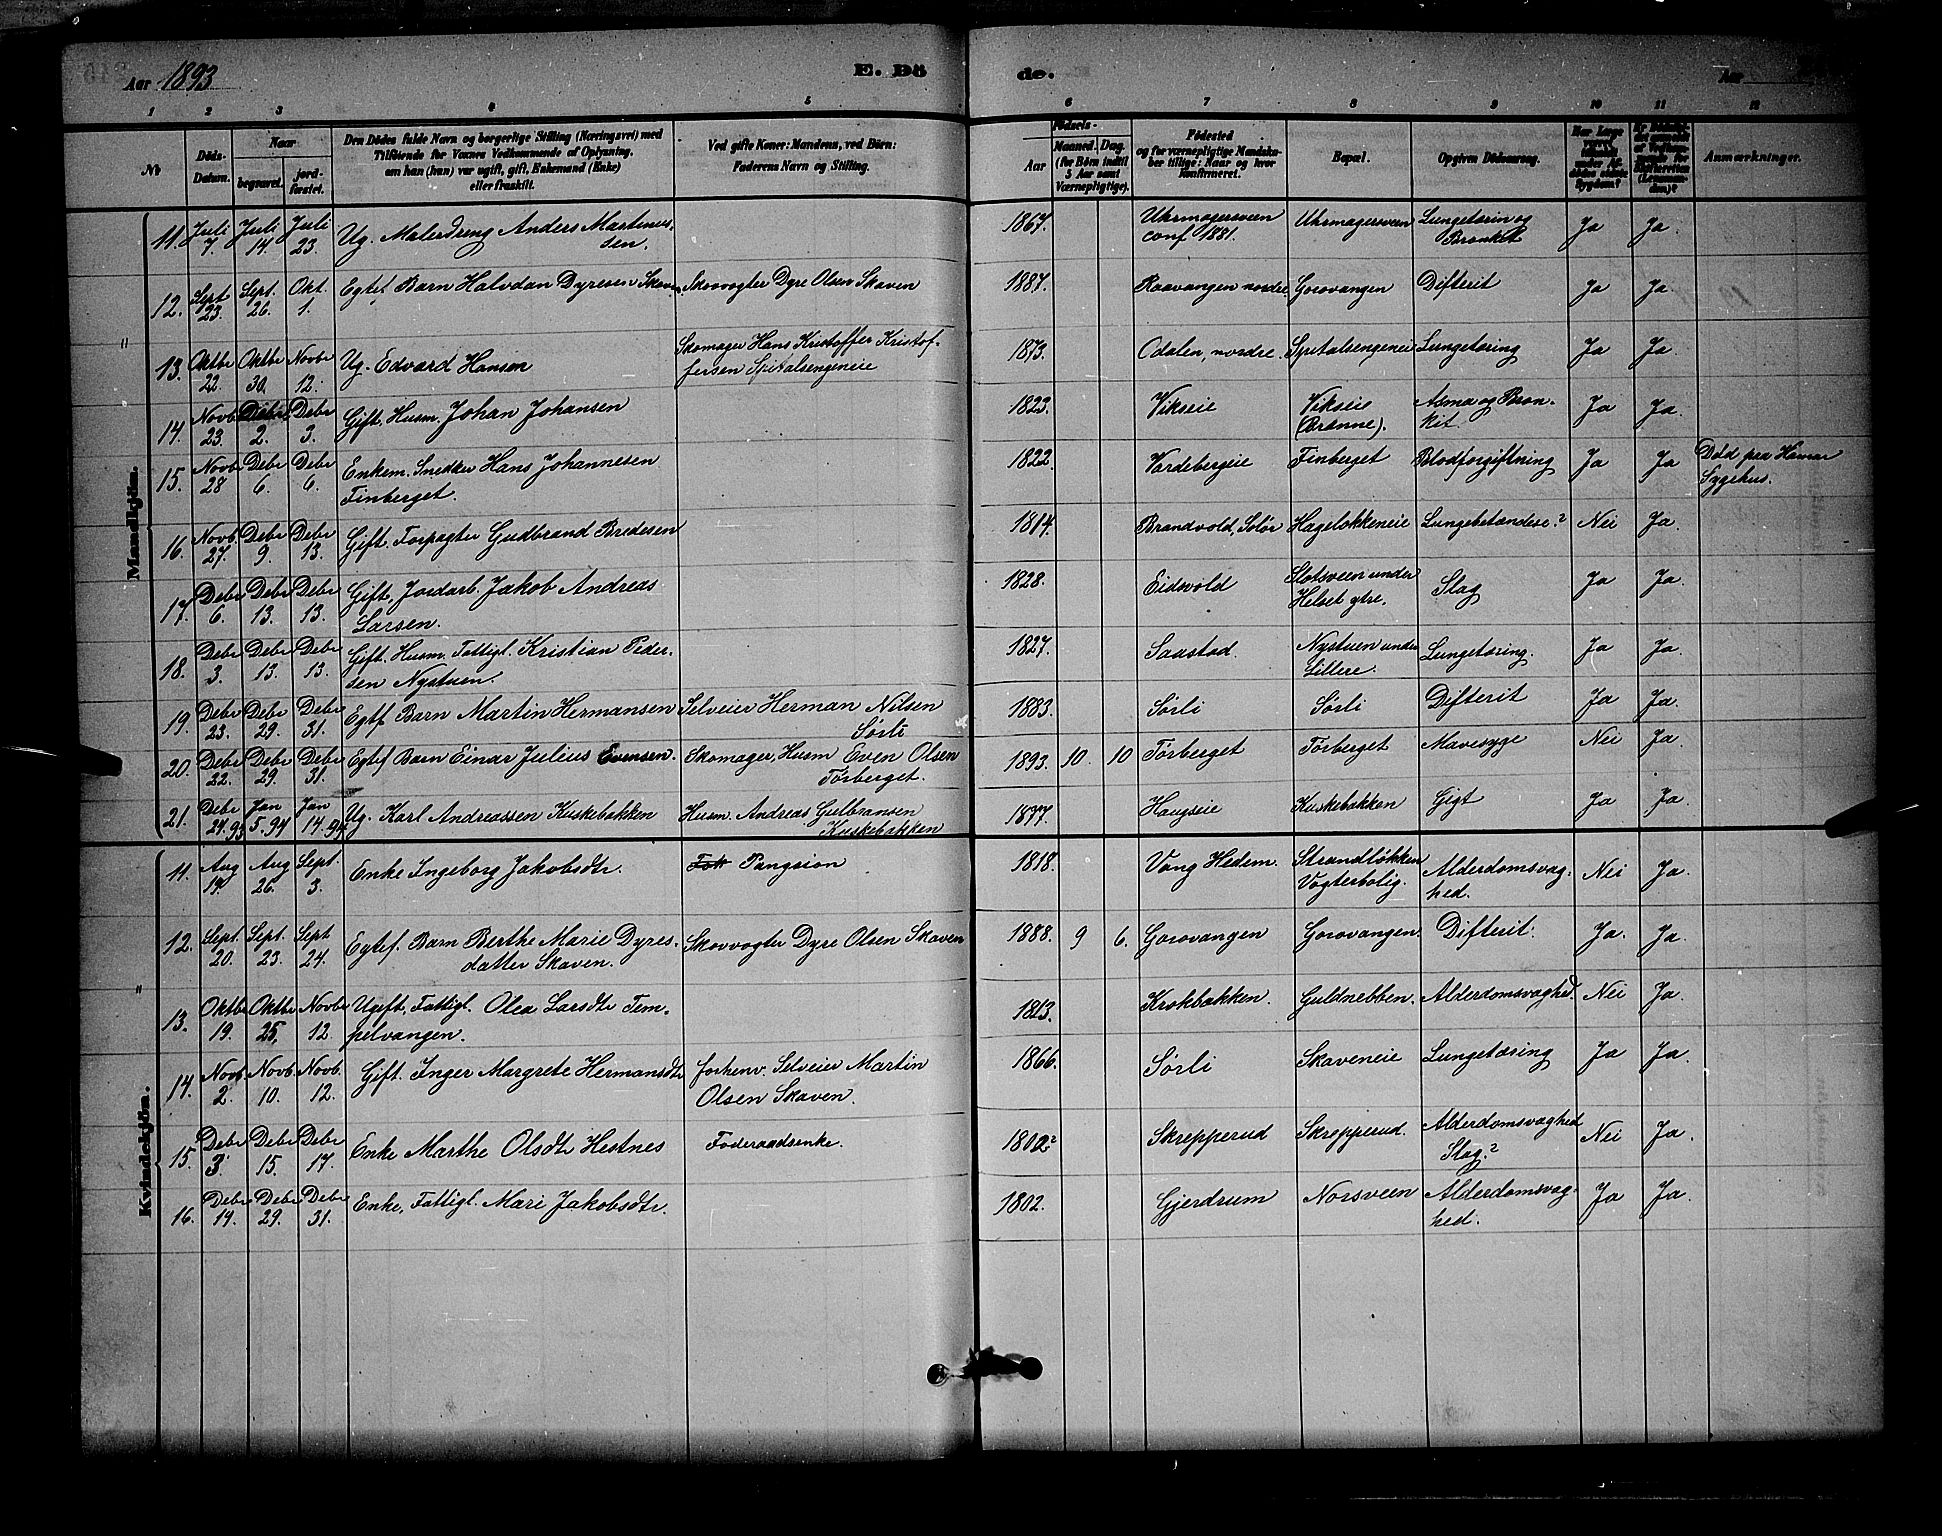 Aar 1893 E. Dö de. Aar
1 2 3 4 5 6 7 8 9 10 11 12
№ Döds-Datum. Naar begravet. jordfæstet. Den Dödes fulde Navn og borgerlige Stilling (Næringsvei) med Tilföiende for Voxnes Vedkommende af Oplysning, om han (hun) var ugift, gift, Enkemand (Enke) eller fraskilt. Ved gifte Koner: Mandens, ved Börn: Faderens Navn og Stilling. Födsels- Aar Maaned. Dag. (for Börn indtil 5 Aar samt Værnepligtige). Födested og for værnepligtige Mandskaber tillige: Naar og hvor konfirmeret. Bopæl. Opgiven Dödsaarsag. Anmærkninger.
Mandkjön.
11. Juli 7. Juli 14. Juli 23. Ug. Malerdreng Anders Martinussen. 1867. Uhrmagersveen conf 1881. Uhrmagersveen Lungetærin og Bronkit Ja Ja.
12. Sept 23. Sept. 26. Okt. 1. Egtef. Barn Halvdan Dyresen Skaven. Skovvogter Dyre Olsen Skaven 1887. Raavangen nordre. Gorovangen Difterit Ja Ja.
13. Oktbr 22. Oktbr 30. Novbr 12. Ug. Edvard Hansen Skomager Hans Kristoffer Kristoffersen Spitalsengeneie 1873. Odalen, nordre. Spitalsengeneie Lungetæring Ja Ja.
14. Novb 23. Debr. 2. Debr 3. Gift. Husm. Johan Johansen 1823. Vikseie Vikseie (Brænne). Asma og Bronkit. Ja Ja.
15. Novb 28 Debr 6. Debr 6. Enkem. Snedker Hans Johannesen Finberget. 1822. Vardebergeie Finberget Blodforgiftning Ja Ja Død paa Hamar Sygehus.
16. Novb. 27. Debr 9. Debr 13. Gift. Forpagter Gudbrand Bredesen 1814. Brandvold, Solør Hagelökkeneie Lungebetændese? Nei Ja.
17. Debr 6. Debr 13. Debr 13. Gift, Jordarb. Jakob Andreas Larsen. 1828. Eidsvold Slotsveen under Helset ytre. Slag Ja Ja.
18. Debr 3. Debr 13. Debr 13. Gift. Husm. Fattigl. Kristian Pedersen Nystuen. 1827. Saastad. Nystuen under Lillere. Lungetæring. Ja Ja.
19. Debr 23. Debr 29. Debr 31. Egtf Barn Martin Hermansen Selveier Herman Nilsen Sørli 1883. Sørli Sørli Difterit Ja Ja.
20. Debr 22. Debr 29. Debr 31. Egtef Barn Einar Julius Evensen. Skomager, Husm Even Olsen Tørberget. 1893. 10. 10 Tørberget Tørberget Mavesyge Nei Ja.
21. Debr 24. 93 Jan 5. 94 Jan 14. 94 Ug. Karl Andreassen Kuskebakken Husm. Andreas Gulbransen Kuskebakken 1877. Haugseie Kuskebakken Gigt Ja Ja.
Kvindekjön.
11. Aug 19. Aug 26. Sept. 3. Enke Ingeborg Jakobsdtr. Pangsion 1818. Vang Hedem. Strandløkken Vogterbolig. Alderdomsvaghed. Nei Ja.
12. Sept. 20. Sept. 23. Sept 24. Egtef. Barn Berthe Marie Dyresdatter Skaven. Skovvogter Dyre Olsen Skaven 1888. 9 6. Gorovangen Gorovangen. Difterit. Ja. Ja.
13. Oktbr 19. Oktbr 25. Novbr 12. Ugift, Fattigl. Olea Larsdtr Tempelvangen. 1813. Krokbakken. Guldnebben. Alderdomsvaghed. Nei Ja.
14. Novb 2. Novb. 10. Novb. 12. Gift. Inger Margrete Hermansdtr forhenv. Selveier Martin Olsen Skaven. 1866. Sørli Skaveneie Lungetæring Ja Ja.
15. Debr 3. Debr 15. Debr 17. Enke Marthe Olsdtr Hestnes Foderaadsenke. 1802? Skrepperud Skrepperud. Alderdomsvaghed Slag? Nei Ja.
16. Debr 19. Debr 29. Debr 31. Enke, Fattigl. Mari Jakobsdtr. 1802. Gjerdrum Norsveen Alderdomsvaghed. Ja Ja.